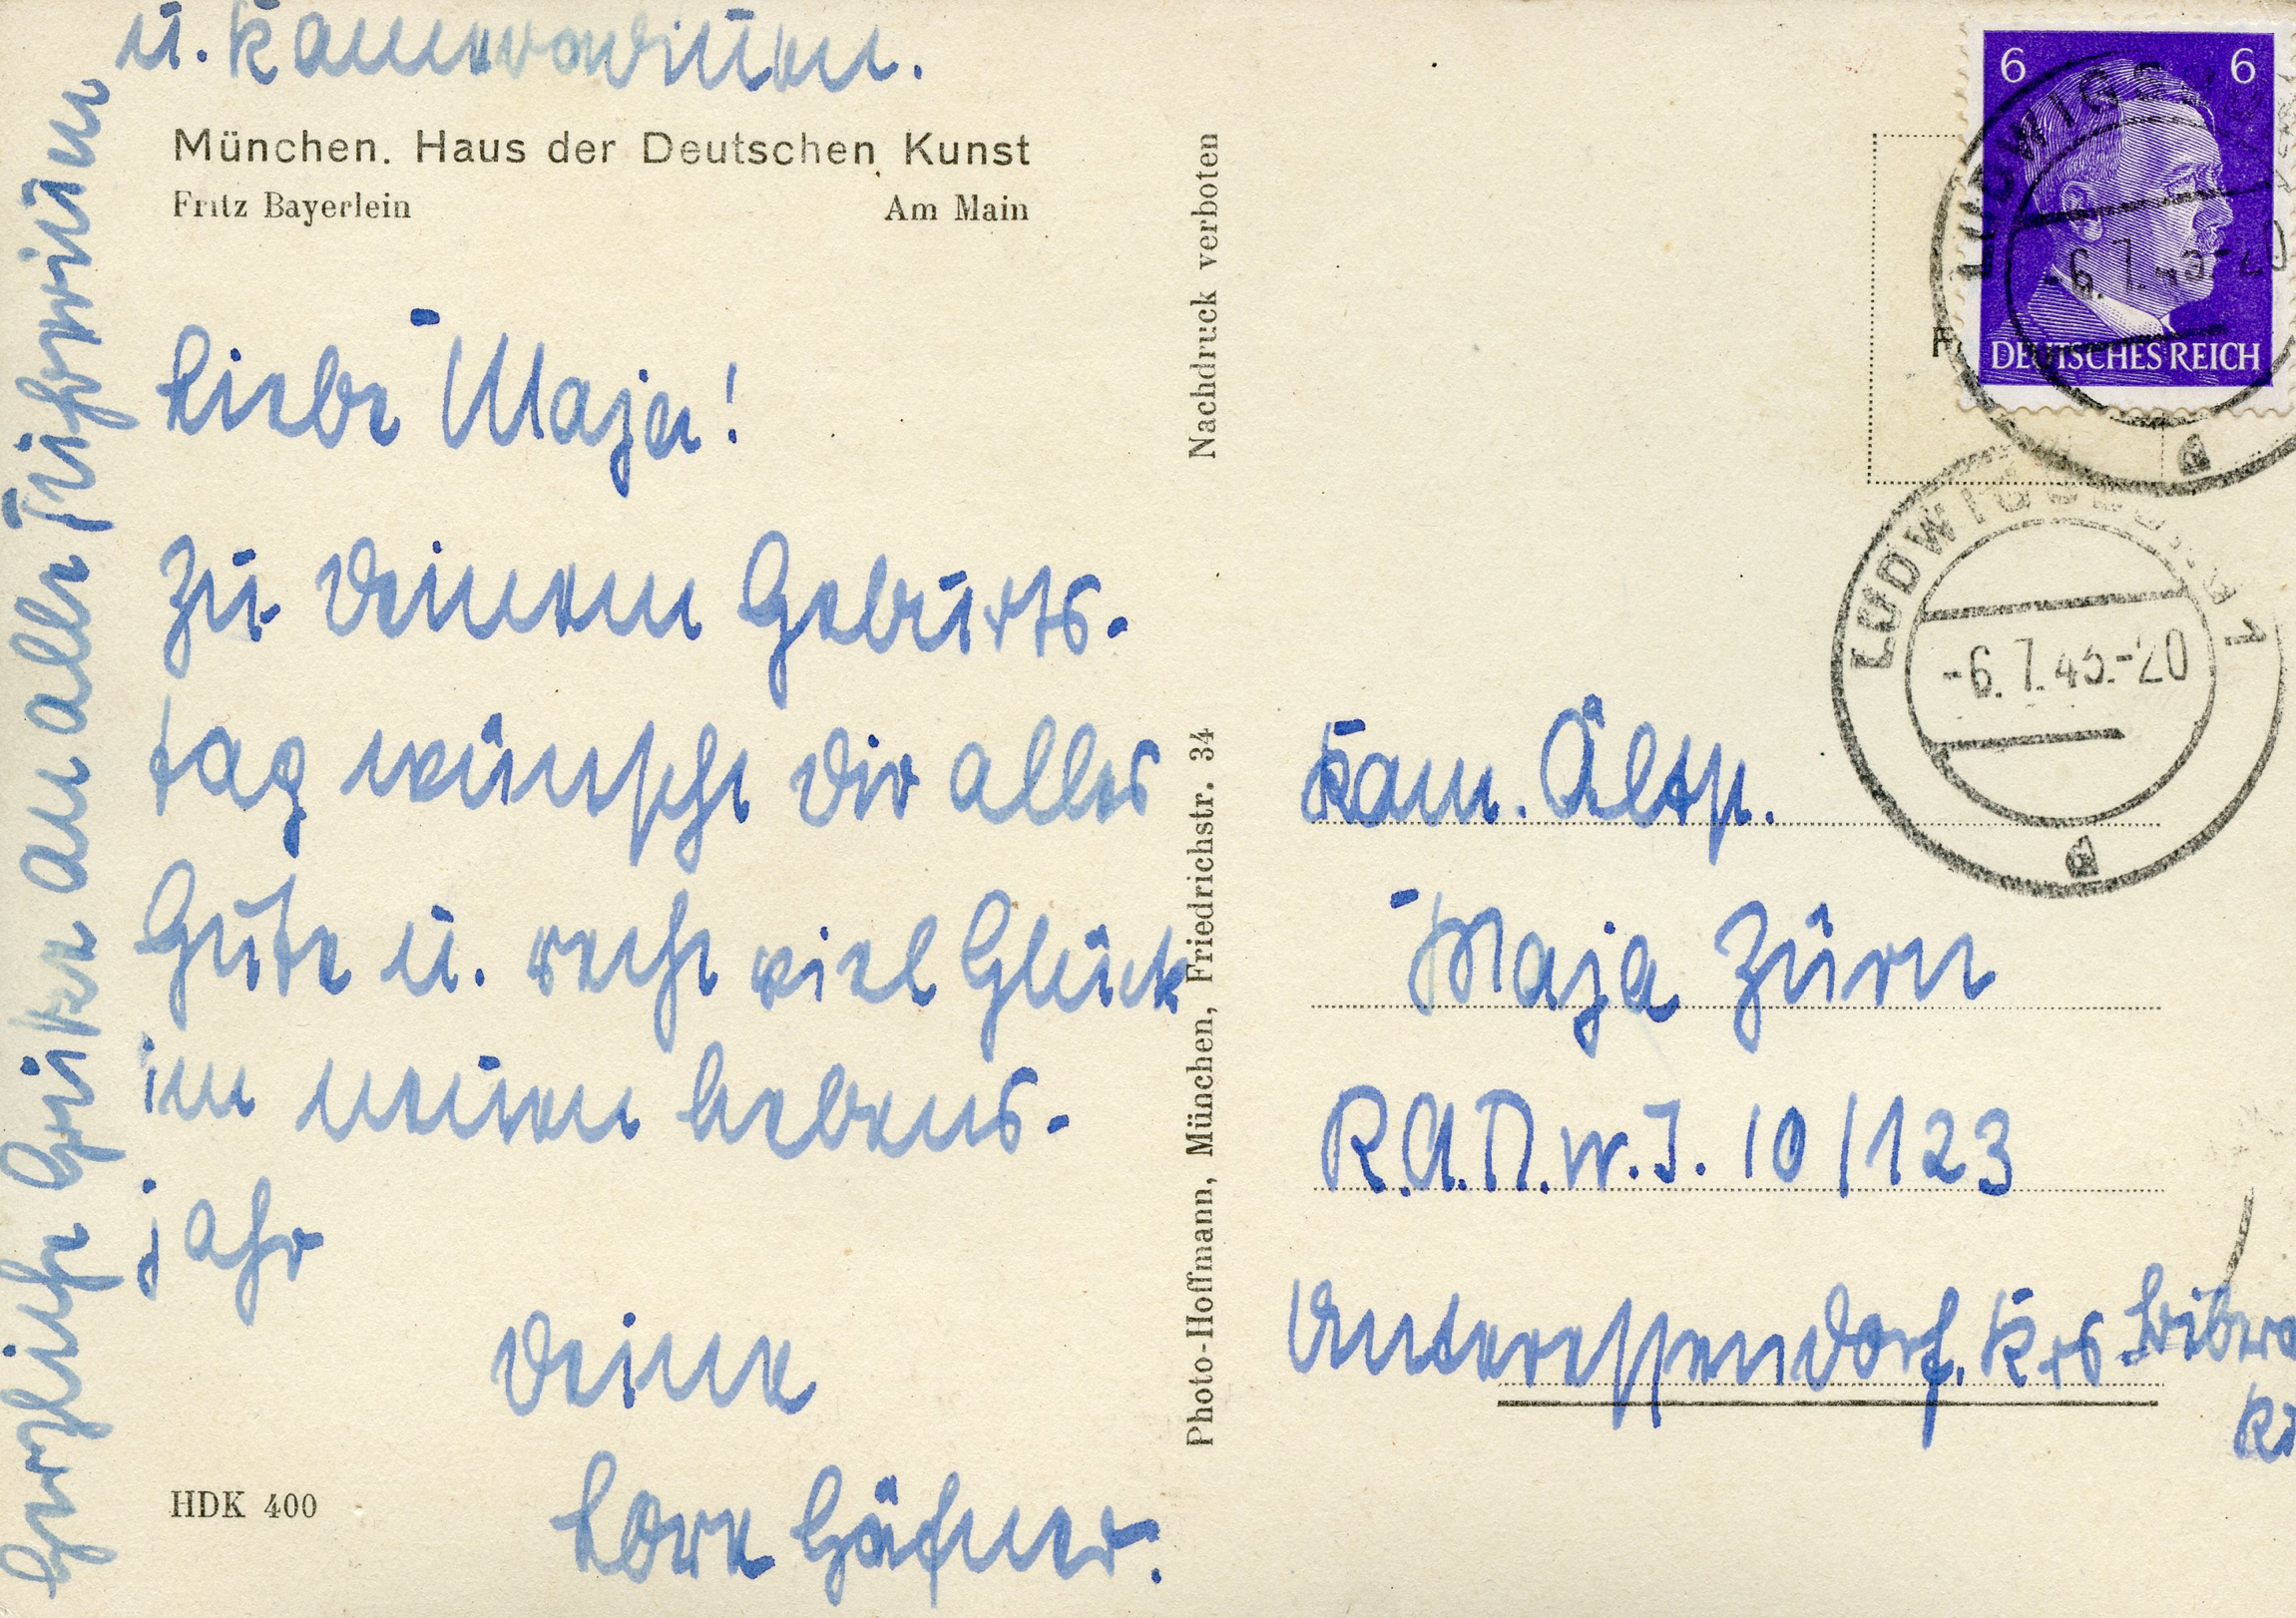 u. Kameradinnen.
München. Haus der Deutschen Kunst
Fritz Bayerlein Am Main
Liebe Maja!
Zu Deinem Geburts-
tag wünsche Dir alles
Gute u. recht viel Glück
im neuen Lebens-
jahr
Deine
Lore
HDK 400
Herzliche Grüße an alle Führerinnen
Nachdruck verboten
Photo-Hoffmann, München, Friedrichstr. 34
6 6
DEUTSCHES REICH
LUDWIGSBURG 1
-6.7.43.-20
a
LUDWIGSBURG 1
-6.7.43.-20
a
Kam. Ältst.
Maja Zürn
R.A.D.w.J. 10/123
Unteressendorf. Krs Bibera